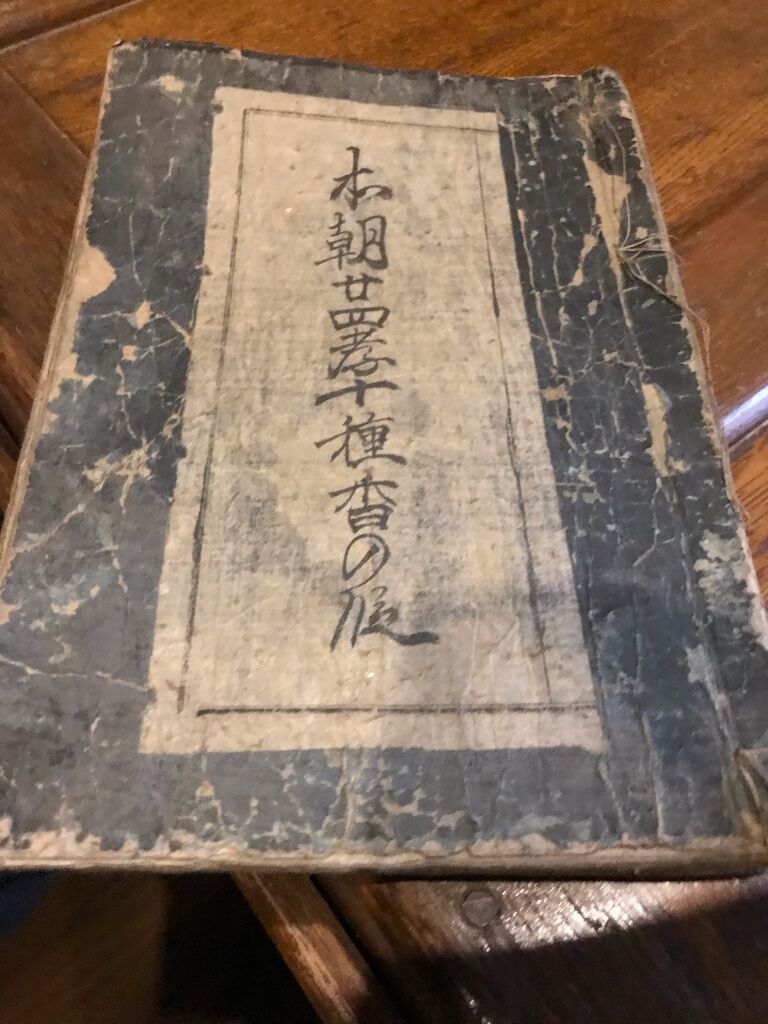 本朝廿四孝十種香の段